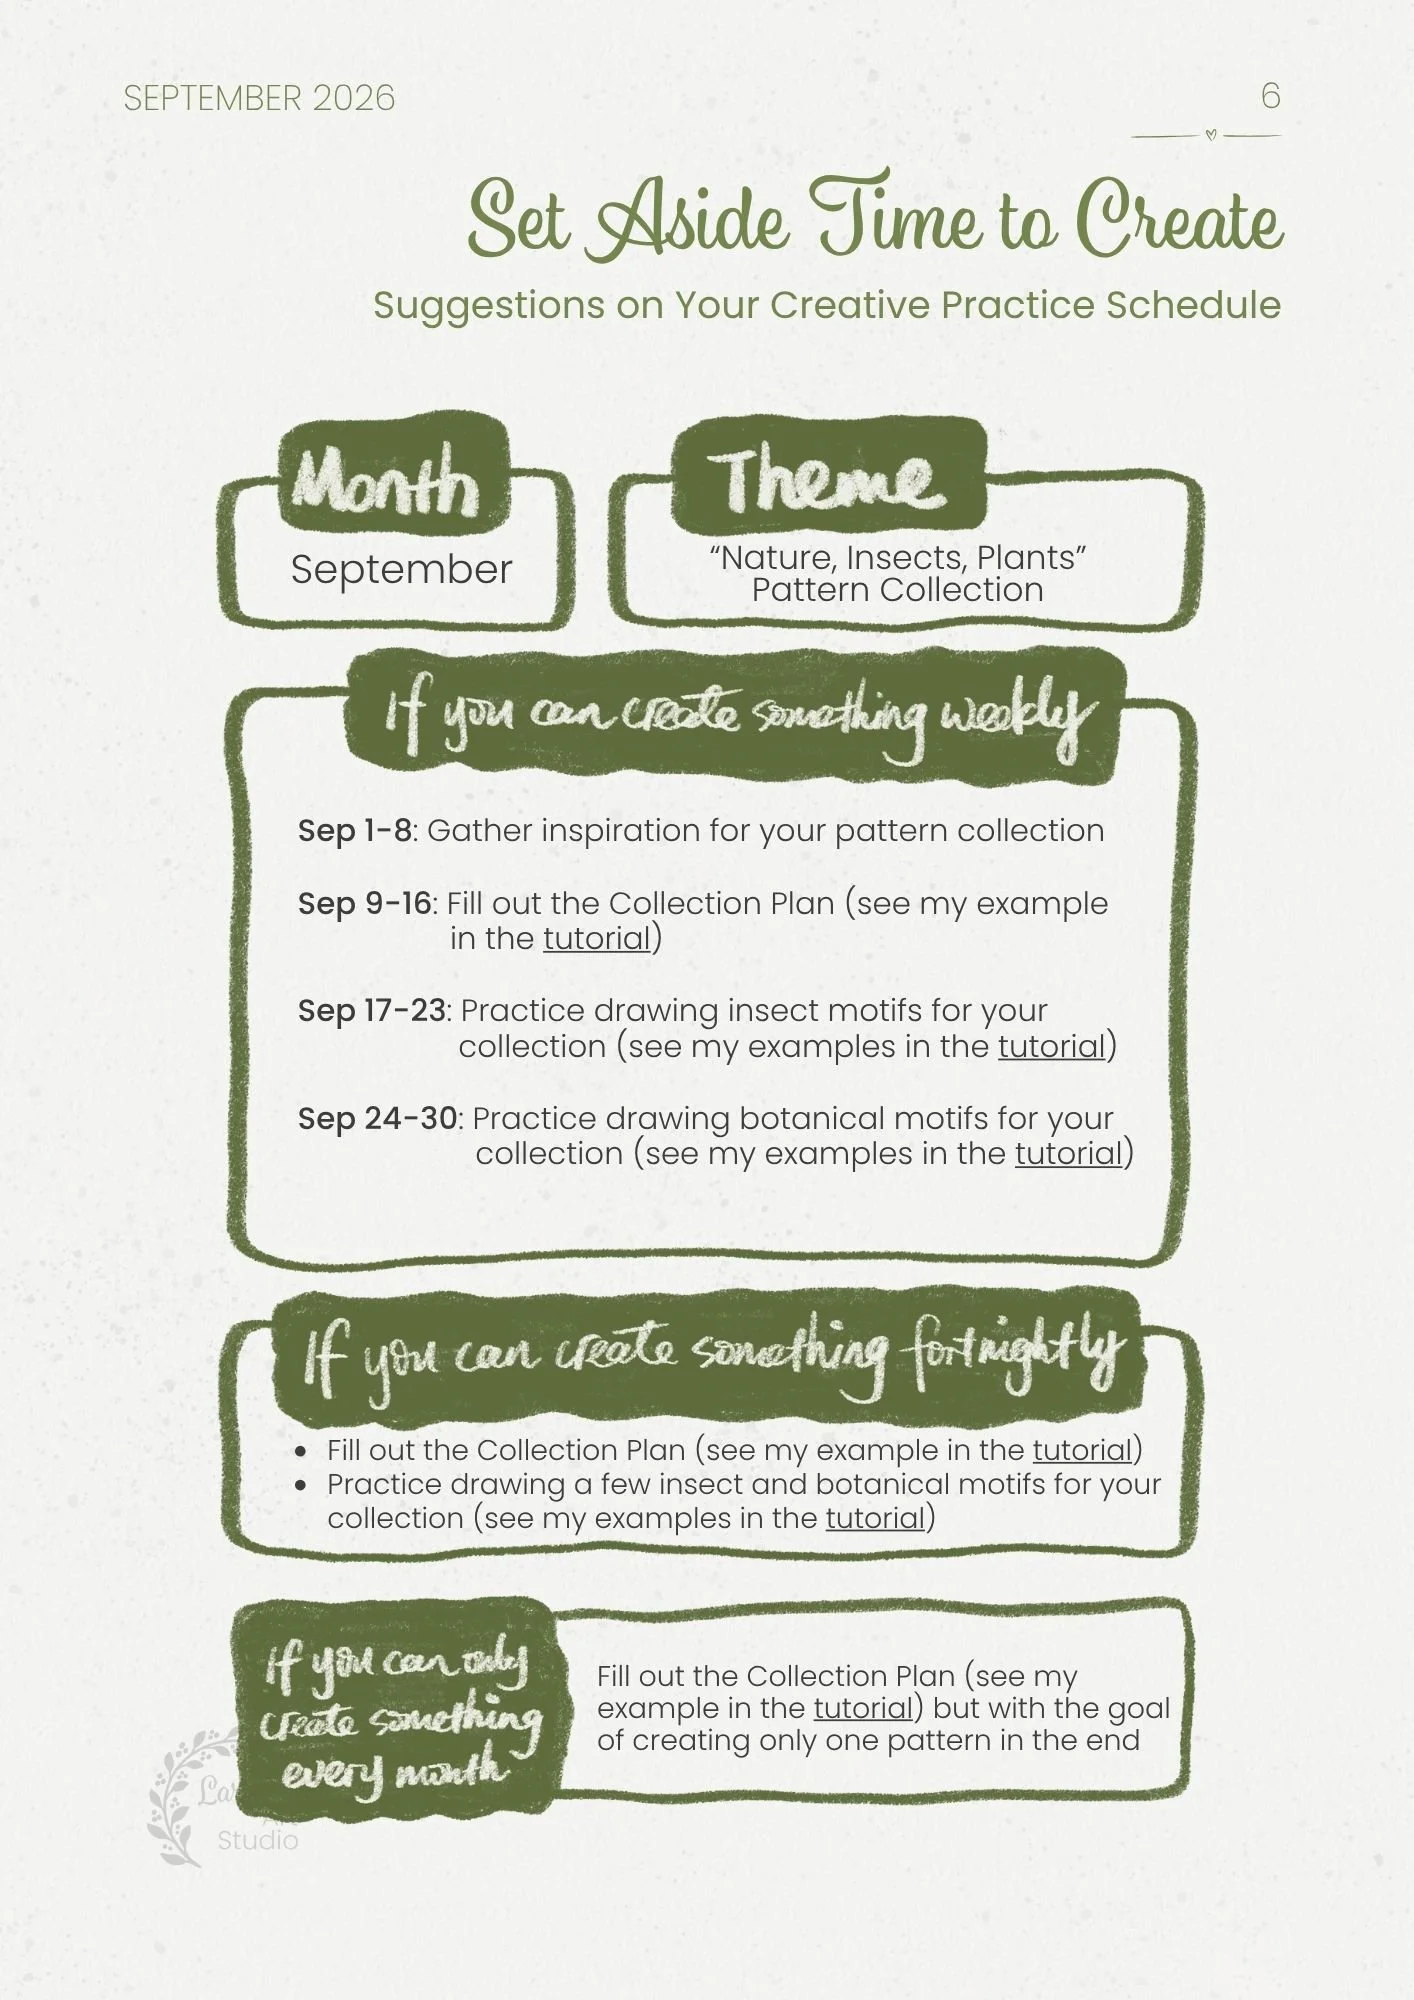 SEPTEMBER 2026
6
Set Aside Time to Create
Suggestions on Your Creative Practice Schedule
Month
September
Theme
“Nature, Insects, Plants”
Pattern Collection
If you can create something weekly
Sep 1-8: Gather inspiration for your pattern collection
Sep 9-16: Fill out the Collection Plan (see my example
in the tutorial)
Sep 17-23: Practice drawing insect motifs for your
collection (see my examples in the tutorial)
Sep 24-30: Practice drawing botanical motifs for your
collection (see my examples in the tutorial)
If you can create something fortnightly
• Fill out the Collection Plan (see my example in the tutorial)
• Practice drawing a few insect and botanical motifs for your
collection (see my examples in the tutorial)
If you can only
create something
every month
Fill out the Collection Plan (see my
example in the tutorial) but with the goal
of creating only one pattern in the end
Studio